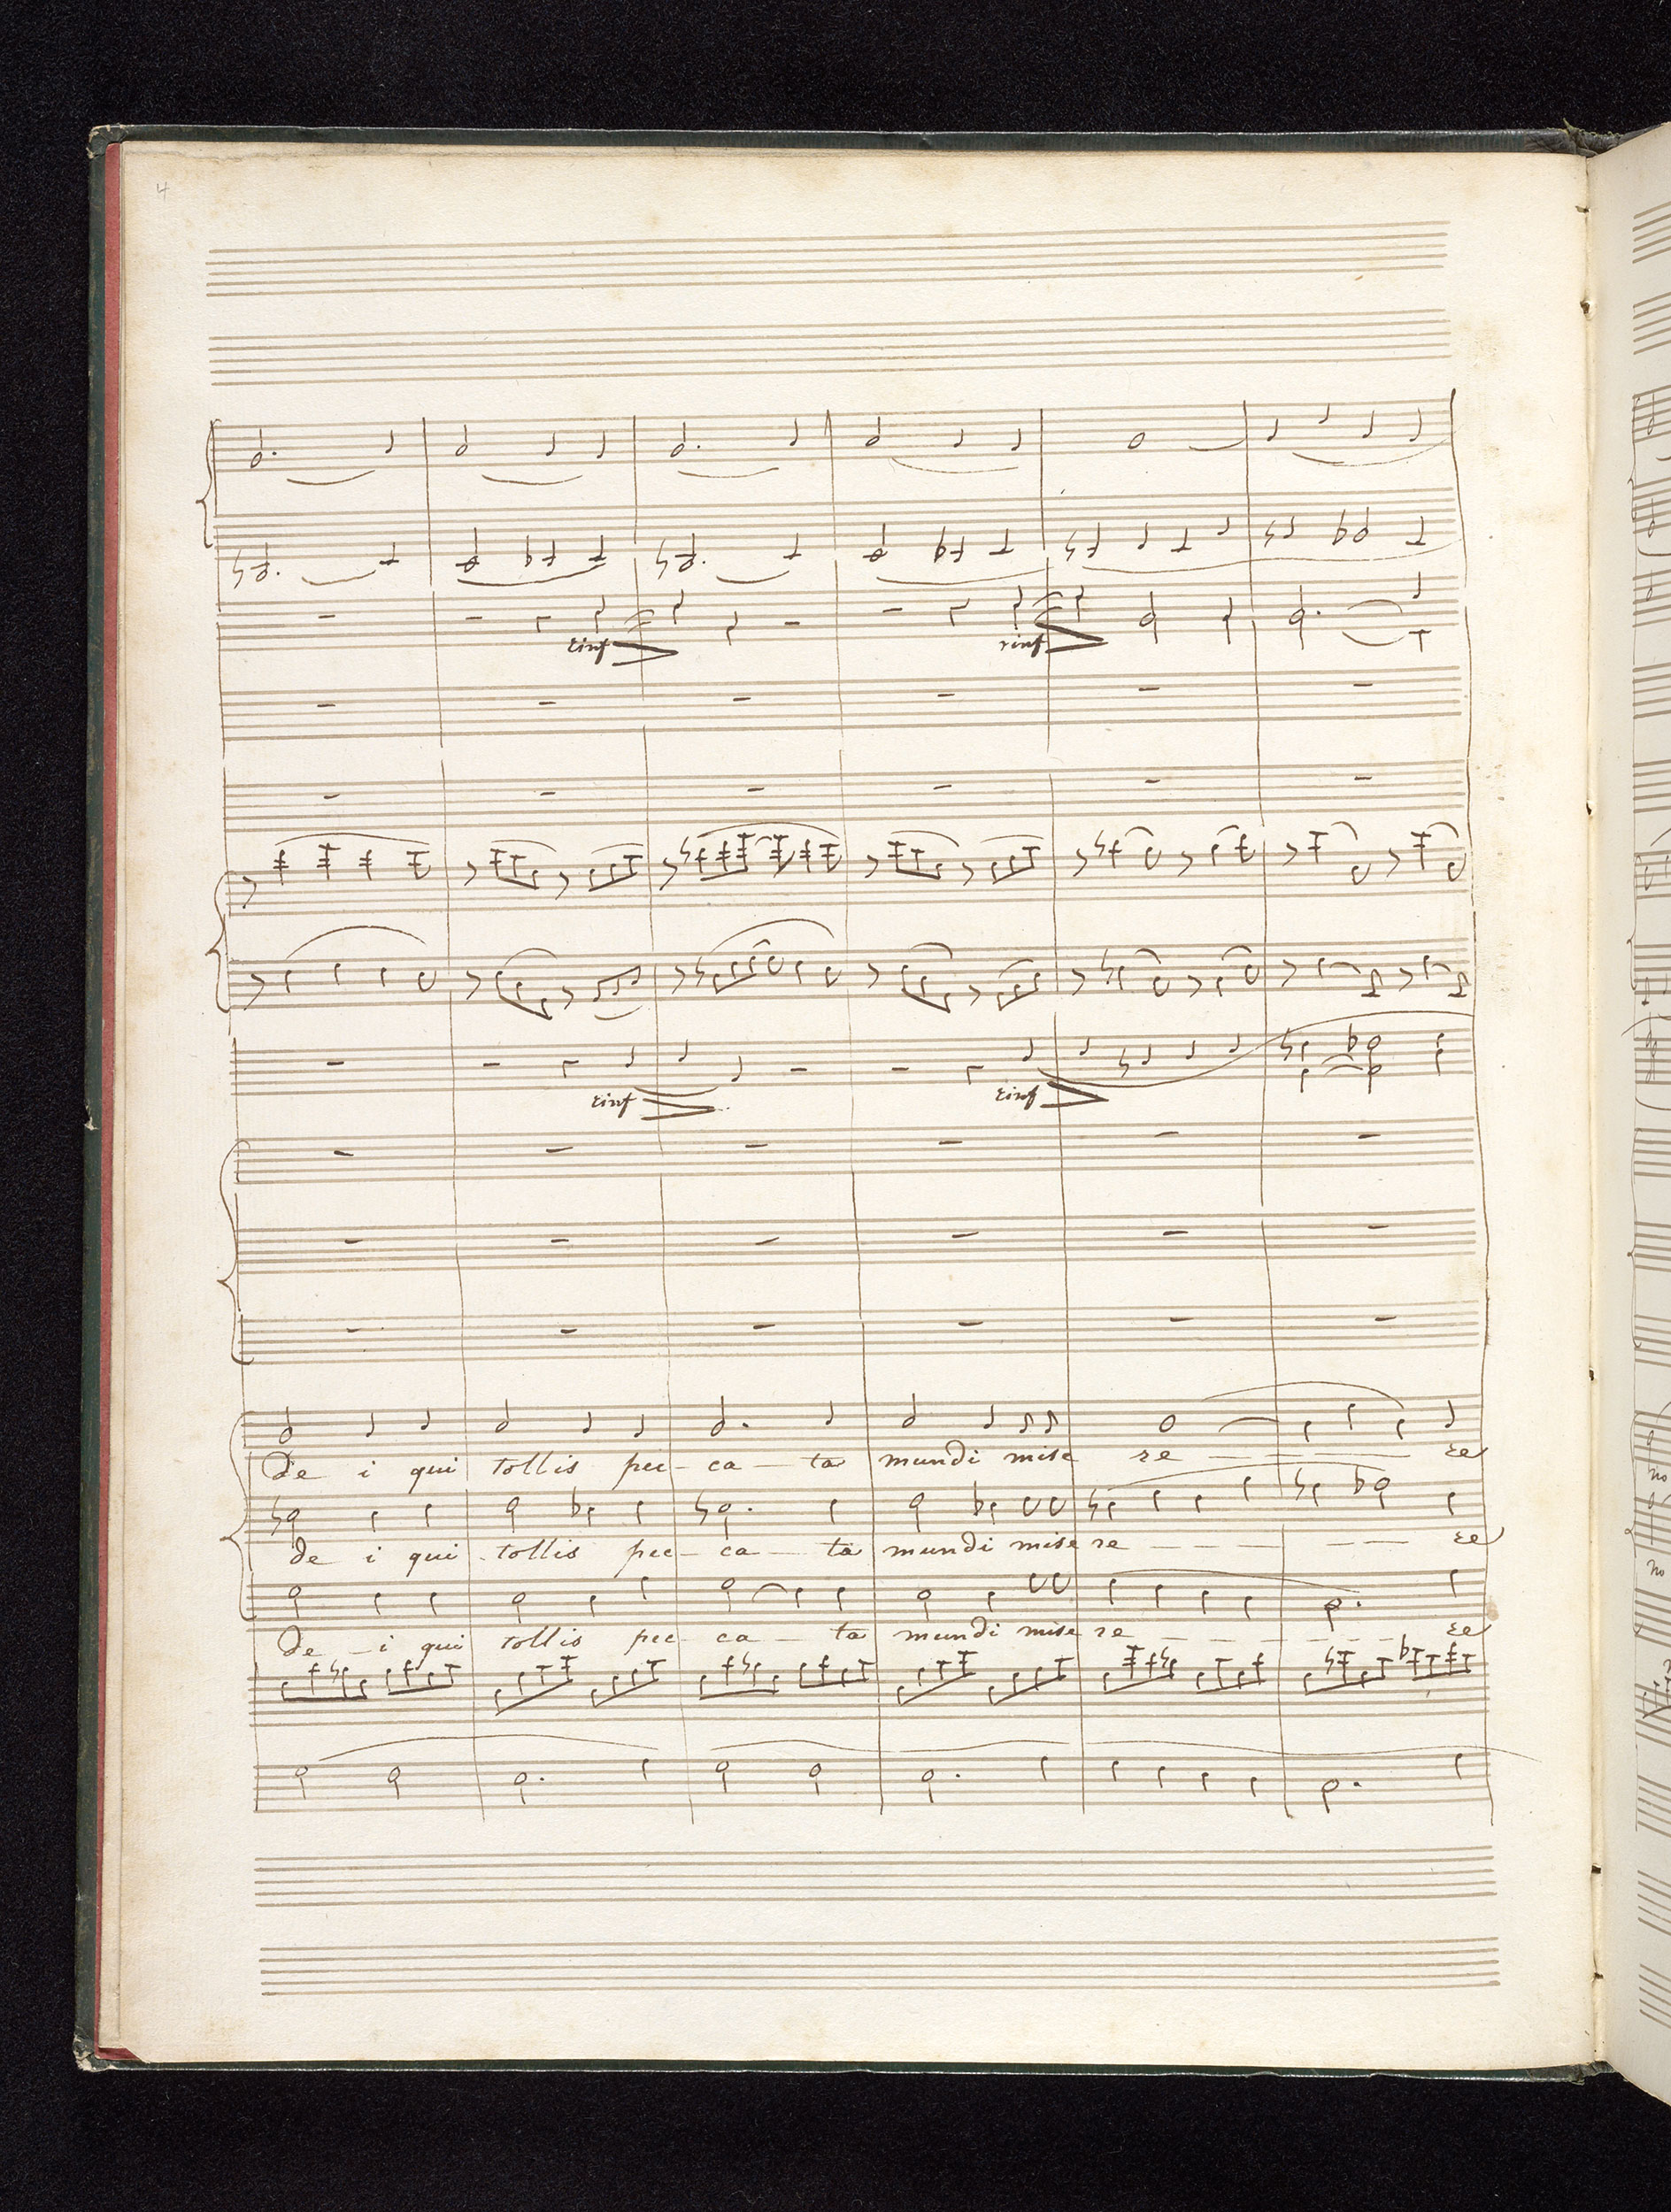 4
rinf rinf
rinf rinf
De i qui tollis pec - ca - ta mundi mise re - - - re
de i qui tollis pec - ca - ta mundi mise re - - - - - re
de - i qui tollis pec - ca - ta mundi mise re - - - - - - re
no
no